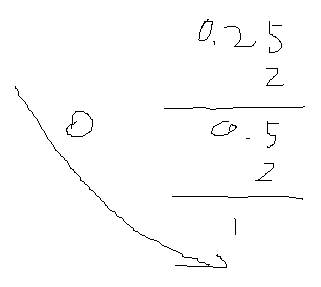 0.25
2
0 0.5
2
1